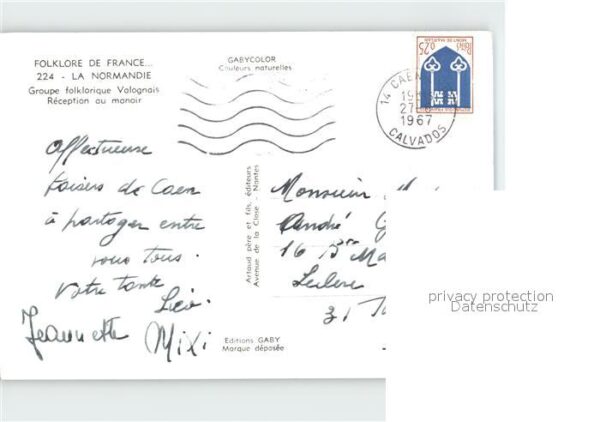 FOLKLORE DE FRANCE...
224 - LA NORMANDIE
Groupe folklorique Valognais
Réception au manoir
GABYCOLOR
Couleurs naturelles
0,25
14 CAEN
27
1967
CALVADOS
Affectueuse
baisers de Caen
à partager entre
vous tous.
Votre tante
Jeannette Mixi
Artaud père et fils, éditeurs
Avenue de la Close - Nantes
Monsieur
André
16
Leclerc
31
Editions GABY
Marque déposée
privacy protection
Datenschutz